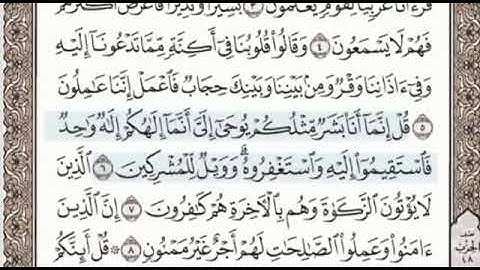 قُرْءَانًا عَرَبِيًّا لِّقَوْمٍ يَعْلَمُونَ ٣ بَشِيرًا وَنَذِيرًا فَأَعْرَضَ أَكْثَرُهُمْ
فَهُمْ لَا يَسْمَعُونَ ٤ وَقَالُوا۟ قُلُوبُنَا فِىٓ أَكِنَّةٍ مِّمَّا تَدْعُونَآ إِلَيْهِ
وَفِىٓ ءَاذَانِنَا وَقْرٌ وَمِنۢ بَيْنِنَا وَبَيْنِكَ حِجَابٌ فَٱعْمَلْ إِنَّنَا عَٰمِلُونَ
٥ قُلْ إِنَّمَآ أَنَا۠ بَشَرٌ مِّثْلُكُمْ يُوحَىٰٓ إِلَىَّ أَنَّمَآ إِلَٰهُكُمْ إِلَٰهٌ وَٰحِدٌ
فَٱسْتَقِيمُوٓا۟ إِلَيْهِ وَٱسْتَغْفِرُوهُ ۗ وَوَيْلٌ لِّلْمُشْرِكِينَ ٦ ٱلَّذِينَ
لَا يُؤْتُونَ ٱلزَّكَوٰةَ وَهُم بِٱلْءَاخِرَةِ هُمْ كَٰفِرُونَ ٧ إِنَّ ٱلَّذِينَ
ءَامَنُوا۟ وَعَمِلُوا۟ ٱلصَّٰلِحَٰتِ لَهُمْ أَجْرٌ غَيْرُ مَمْنُونٍ ٨ ۞ قُلْ أَئِنَّكُمْ
الحزب
٤٨